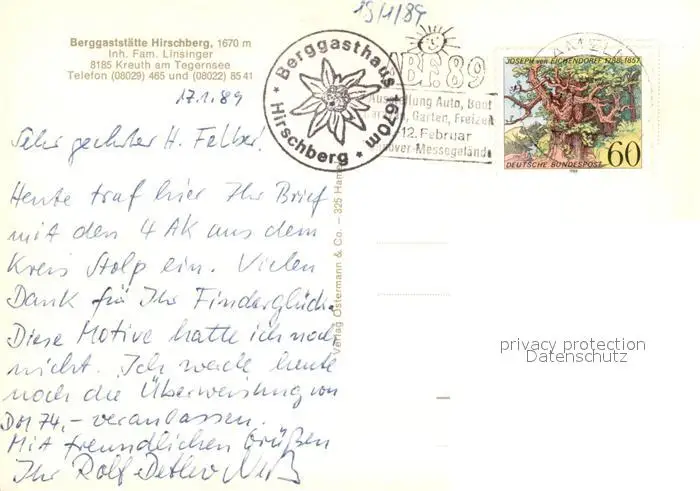 19/1/89
Berggaststätte Hirschberg, 1670 m
Inh. Fam. Linsinger
8185 Kreuth am Tegernsee
Telefon (08029) 465 und (08022) 85 41
17.1.89
* Berggasthaus * 1670m * Hirschberg
ABF. 89
Ausstellung Auto, Boot
Garten, Freizeit
-12. Februar
Hannover-Messegelände
HAMELN
JOSEPH von EICHENDORFF 1788-1857
DEUTSCHE BUNDESPOST 60
1988
Sehr geehrter H. Felber!
Heute traf hier Ihr Brief
mit den 4 AK aus dem
Kreis Stolp ein. Vielen
Dank für Ihr Finderglück.
Diese Motive hatte ich noch
nicht. Ich werde heute
noch die Überweisung von
DM 74,- veranlassen.
Mit freundlichen Grüßen
Ihr Rolf-Detlev
Verlag Ostermann & Co. – 325 Hameln
privacy protection
Datenschutz